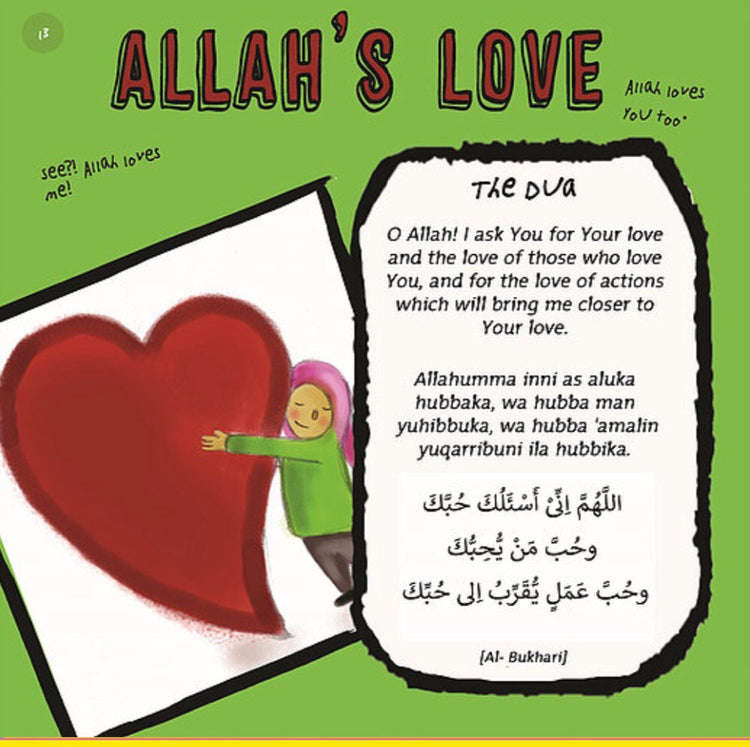 13
ALLAH'S LOVE
Allah loves
You too.
see?! Allah loves
me!
The Dua
O Allah! I ask You for Your love
and the love of those who love
You, and for the love of actions
which will bring me closer to
Your love.
Allahumma inni as aluka
hubbaka, wa hubba man
yuhibbuka, wa hubba 'amalin
yuqarribuni ila hubbika.
اللَّهُمَّ اِنِّىْ أَسْئَلُكَ حُبَّكَ
وحُبَّ مَنْ يُّحِبُّكَ
وحُبَّ عَمَلٍ يُّقَرِّبُ اِلى حُبِّكَ
[Al- Bukhari]